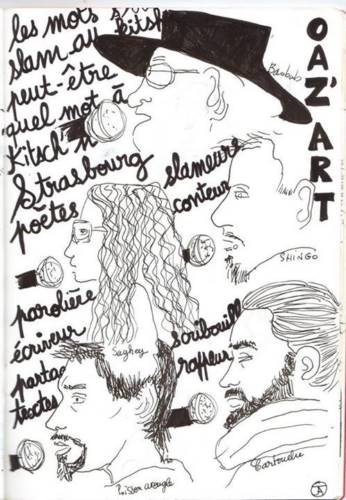 les mots s
slam-au kitsh
peut-être
quel mot à
Kitsch'n
Strasbourg
poètes
OAZ'ART
Baobab
slameurs
conteur
SHINGO
parolière
écriveur
partag
textes
Saghey
scribouill
raffleur
Cartouche